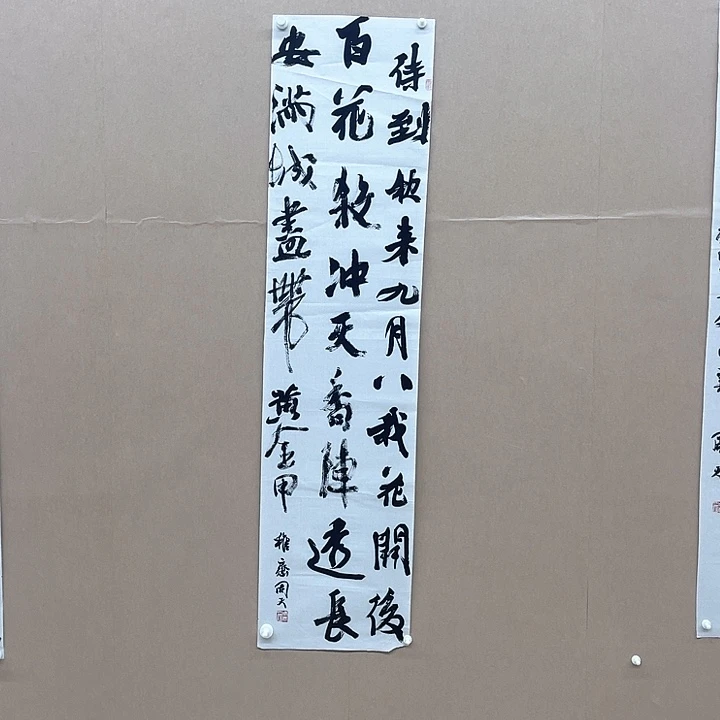 待到秋来九月八我花開後
百花殺冲天香陣透長
安滿城盡帶黄金甲